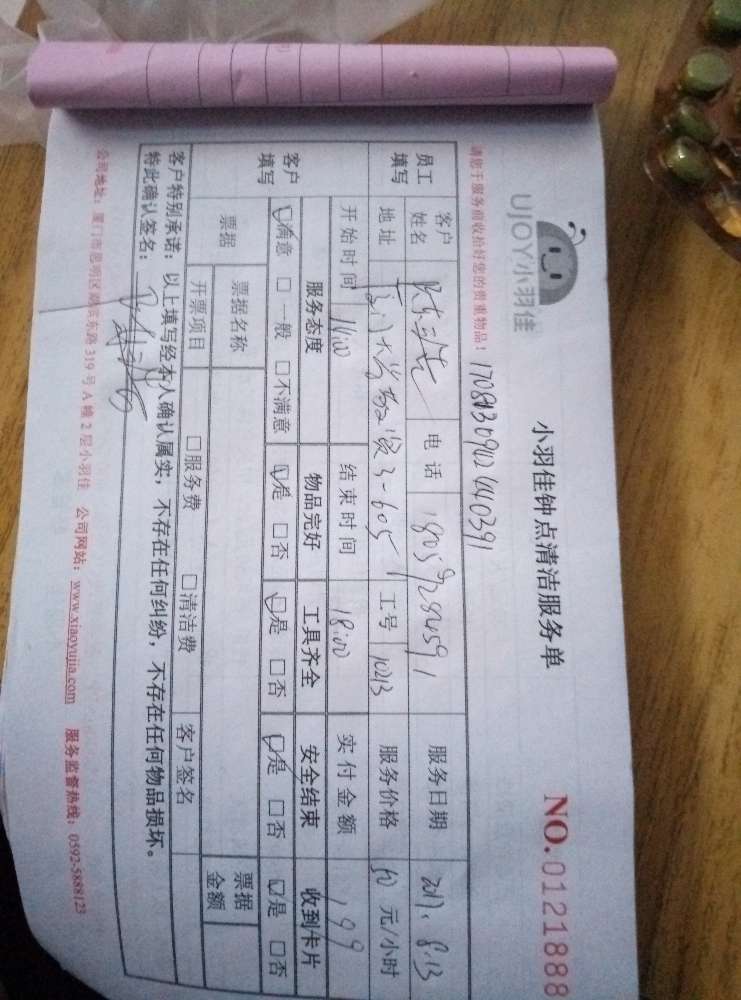 UJOY小羽佳
小羽佳钟点清洁服务单
NO. 0121888
请您于服务前收拾好您的贵重物品！
员工填写 客户姓名 电话 18059284591 服务日期 2017.8.13
地址 工号 10213 服务价格 50 元/小时
开始时间 14:00 结束时间 18:00 实付金额 199
客户填写 服务态度 物品完好 工具齐全 安全结束 收到卡片
☑满意 □一般 □不满意 ☑是 □否 ☑是 □否 ☑是 □否 ☑是 □否
票据 票据名称 票据金额
开票项目 □服务费 □清洁费 客户签名
客户特别承诺：以上填写经本人确认属实，不存在任何纠纷，不存在任何物品损坏。
特此确认签名：
公司地址：厦门市思明区湖滨东路 319 号 A 幢 2 层小羽佳 公司网站：www.xiaoyujia.com 服务监督热线：0592-5888123